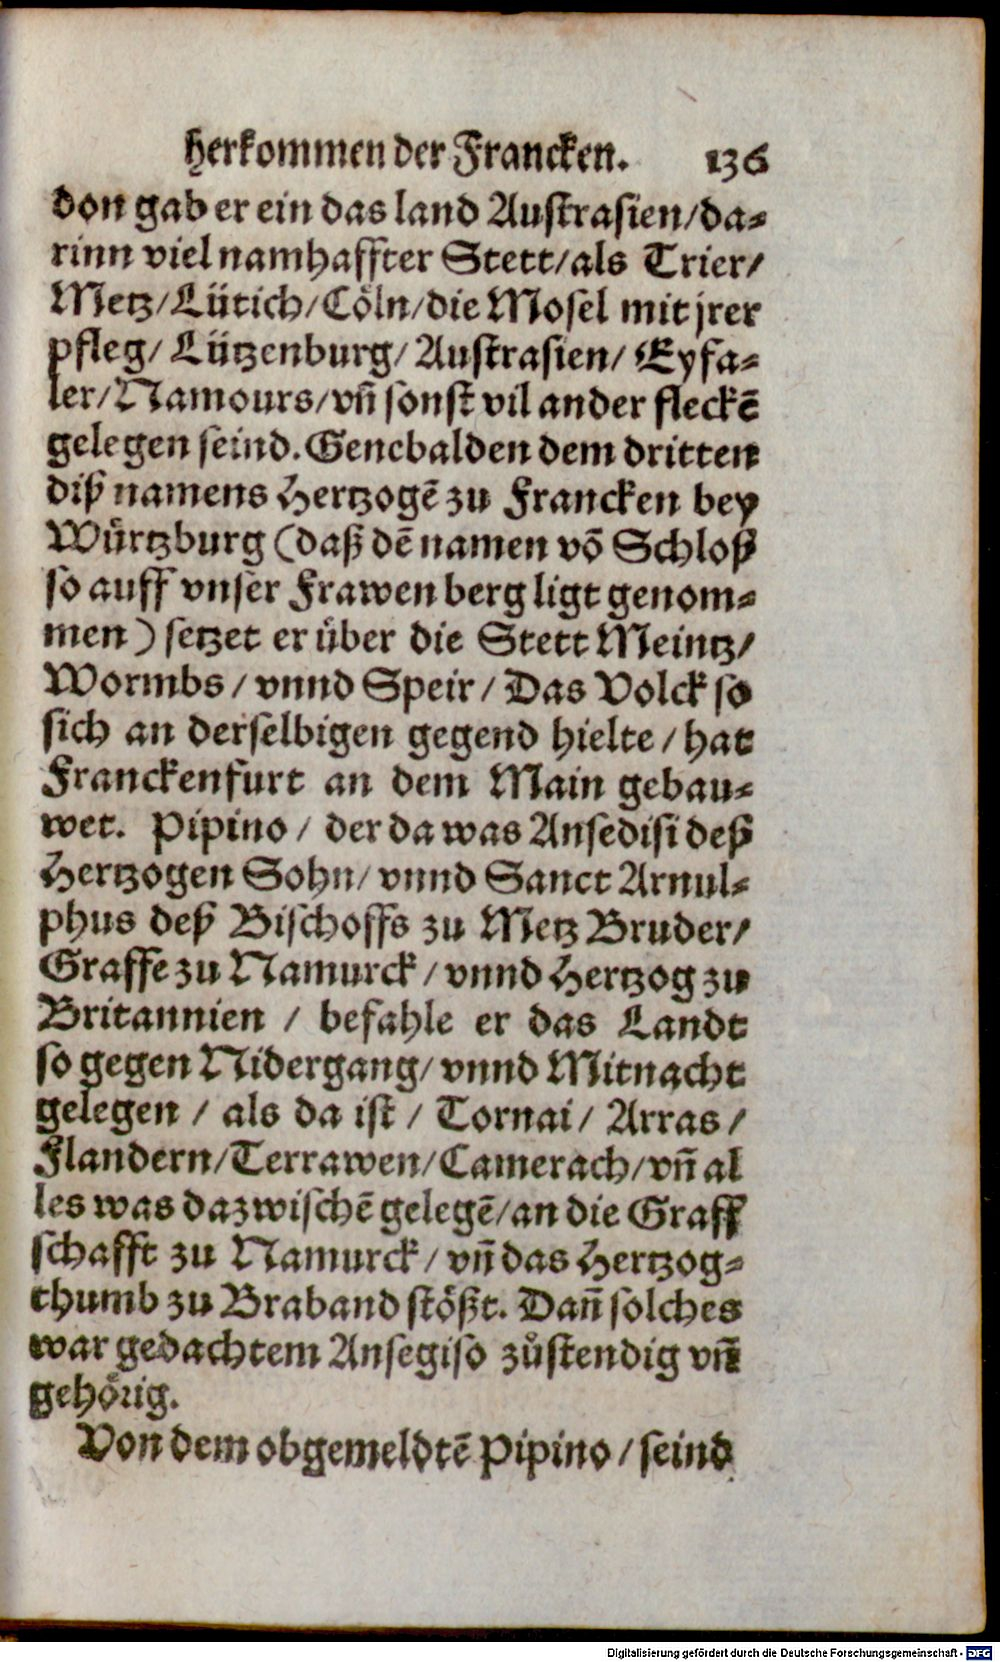 herkommen der Francken. 136
don gab er ein das land Austrasien/da-
rinn viel namhaffter Stett/als Trier/
Metz/Lütich/Cöln/die Mosel mit jrer
pfleg/ Lützenburg/ Austrasien/ Eyfa-
ler/Namours/vñ sonst vil ander fleckẽ
gelegen seind. Gencbalden dem dritten
diß namens Hertzogẽ zu Francken bey
Würtzburg (daß dẽ namen võ Schloß
so auff vnser Frawen berg ligt genom-
men) setzet er über die Stett Meintz/
Wormbs/ vnnd Speir/ Das Volck so
sich an derselbigen gegend hielte/ hat
Franckenfurt an dem Main gebau-
wet. Pipino/ der da was Ansedisi deß
Hertzogen Sohn/ vnnd Sanct Arnul-
phus deß Bischoffs zu Metz Bruder/
Graffe zu Namurck/ vnnd Hertzog zu
Britannien/ befahle er das Landt
so gegen Nidergang/ vnnd Mitnacht
gelegen/ als da ist/ Tornai/ Arras/
Flandern/Terrawen/Camerach/vñ al
les was dazwischẽ gelegẽ/an die Graff
schafft zu Namurck/ vñ das Hertzog-
thumb zu Braband stößt. Dañ solches
war gedachtem Ansegiso zůstendig vñ
gehörig.
Von dem obgemeldtẽ Pipino/ seind
Digitalisierung gefördert durch die Deutsche Forschungsgemeinschaft - DFG